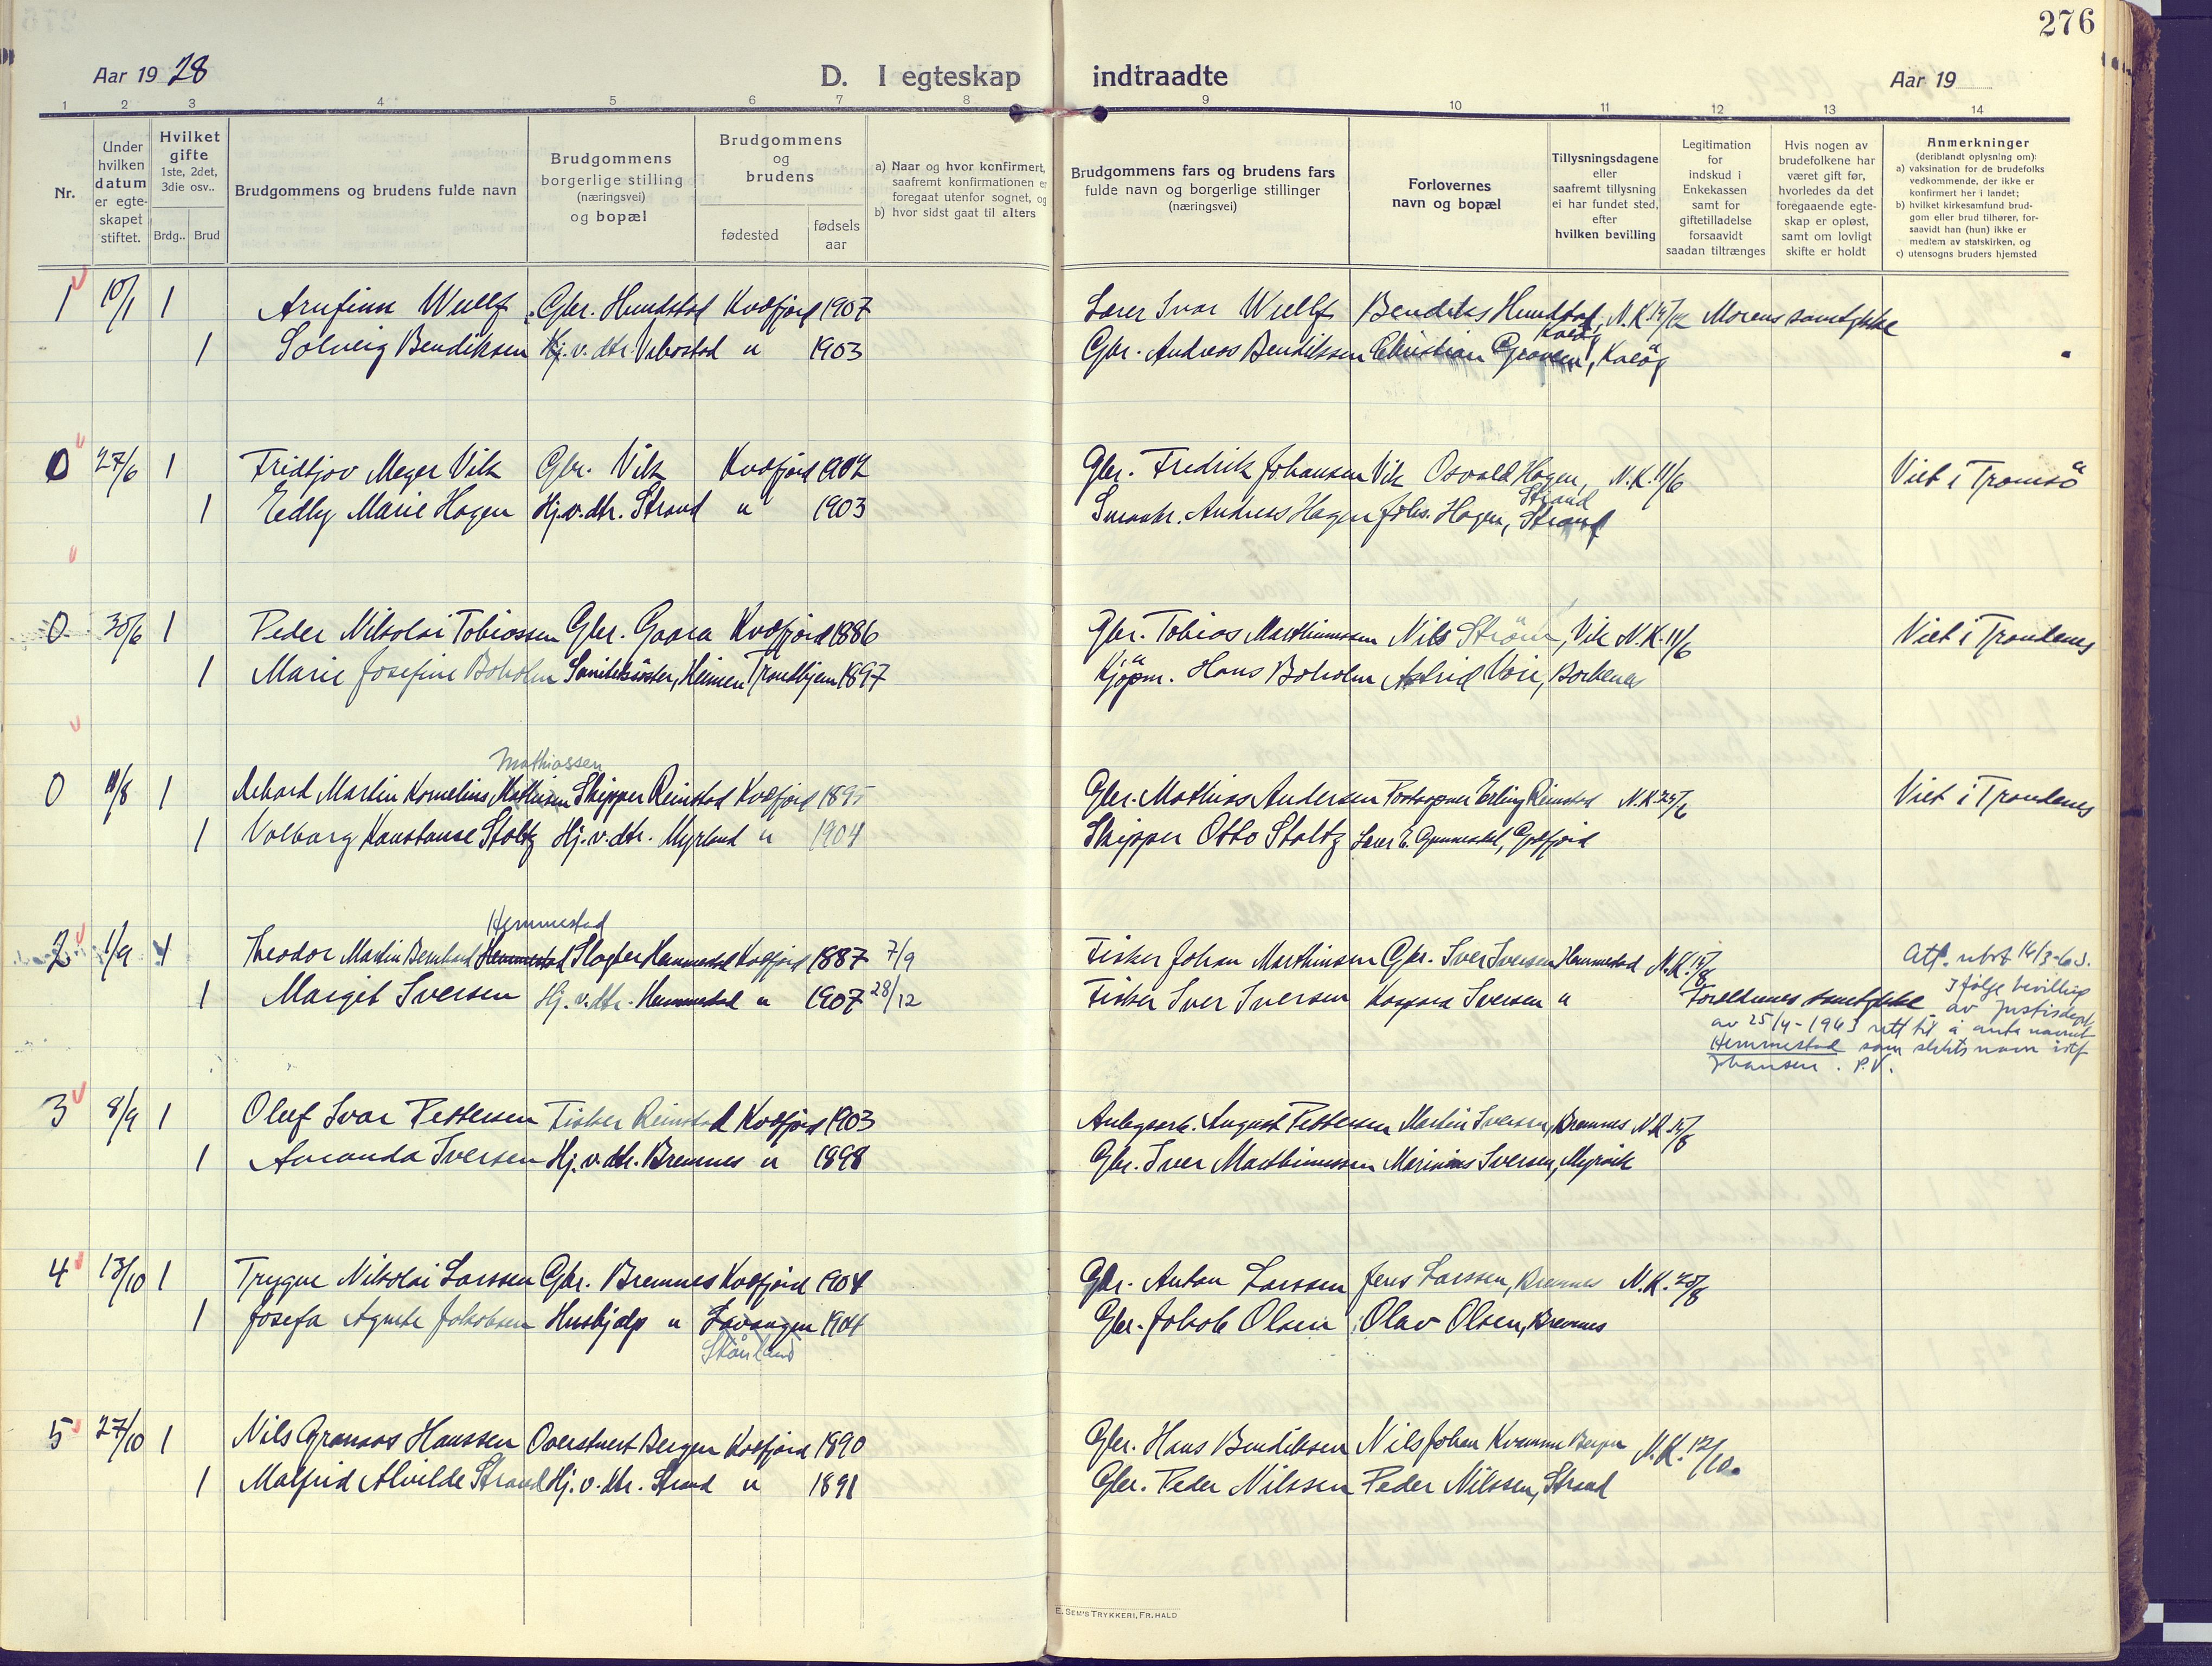 276
Aar 1928
D. I egteskap indtraadte
Aar 19
1 2 3 4 5 6 7 8 9 10 11 12 13 14
Nr.
Under hvilken datum er egte-skapet stiftet.
Hvilket gifte 1ste, 2det, 3die osv..
Brdg.. Brud
Brudgommens og brudens fulde navn
Brudgommens borgerlige stilling (næringsvei) og bopæl
Brudgommens og brudens
fødested
fødsels aar
a) Naar og hvor konfirmert, saafremt konfirmationen er foregaat utenfor sognet, og
b) hvor sidst gaat til alters
Brudgommens fars og brudens fars fulde navn og borgerlige stillinger (næringsvei)
Forlovernes navn og bopæl
Tillysningsdagene eller saafremt tillysning ei har fundet sted, efter hvilken bevilling
Legitimation for indskud i Enkekassen samt for giftetilladelse forsaavidt saadan tiltrænges
Hvis nogen av brudefolkene har været gift før, hvorledes da det foregaaende egte-skap er opløst, samt om lovligt skifte er holdt
Anmerkninger
(deriblandt oplysning om):
a) vaksination for de brudefolks vedkommende, der ikke er konfirmert her i landet;
b) hvilket kirkesamfund brud-gom eller brud tilhører, for-saavidt han (hun) ikke er medlem av statskirken, og
c) utensogns bruders hjemsted
1 10/1 1 Arnfinn Wullf Gbr. Hundstad Kvæfjord 1907 Lærer Ivar Wullf Bendiks Hundstad, N.K. Morens samtykke
Kvæfj
1 Solveig Bendiksen Hj.v. dtr. Vebostad " 1903 Gbr. Andreas Bendiksen Christian
0 27/6 1 Fridtjov Meyer Vik Gbr. Vik Kvæfjord 1902 Gbr. Fredrik Johansen Vik Osvald Hagen, N.K. 11/6 Viet i Tromsö
Strand
1 Edby Marie Hagen Hj.v.dtr. Strand " 1903 Andreas Hagen Johs. Hagen, Strand
0 30/6 1 Peder Nikolai Tobiassen Gbr. Gaara Kvæfjord 1886 Gbr. Tobias Marthinussen Nils Ström, Vik N.K. 11/6 Viet i Trondenes
1 Marie Josefine Boholm Sanitetssöster, Heimen Trondhjem 1897 Kjöpm. Hans Boholm Astrid Voie, Borkenes
Mathiassen
0 11/8 1 Rikard Martin Kornelius Mathisen Skipper Reinstad Kvæfjord 1895 Gbr. Mathias Andersen Postaapner Erling Reinstad N.K. Viet i Trondenes
1 Valborg Konstanse Stoltz Hj.v.dtr. Myrland " 1904 Skipper Otto Stoltz Lærer E. Gulfjord
Hemmestad
2 1/9 1 Theodor Martin Bernhard Hemmestad Slagter Hemmestad Kvæfjord 1887 7/9 Fisker Johan Marthinsen Gbr. Iver Iversen Hemmestad N.K. Att. utst 14/3-63.
1 Margit Iversen Hj.v.dtr. Hemmestad " 1907 28/12 Fisker Iver Iversen Kaspara Iversen " Foreldrenes samtykke
I følge bevilling av Justisdept.
av 25/4-1963 rett til å anta navnet
Hemmestad som slektsnavn istf
Johansen. P.V.
3 8/9 1 Oluf Ivar Pettersen Fisker Reinstad Kvæfjord 1903 August Pettersen Martin Iversen, Bremnes N.K.
1 Amanda Iversen Hj.v.dtr. Bremnes " 1898 Gbr. Iver Marthinussen Marinius Iversen, Myrvik
4 13/10 1 Trygve Nikolai Larssen Gbr. Bremnes Kvæfjord 1904 Gbr. Anton Larssen Jens Larssen, Bremnes N.K.
1 Josefa Agnete Jakobsen Husbjelp " Lavangen 1904 Gbr. Jakob Olsen Olav Olsen, Bremnes
Skånland
5 27/10 1 Nils Hanssen Bergen Kvæfjord 1890 Gbr. Hans Bendiksen Nils Johan Bergen N.K. 12/10
1 Malfrid Alvilde Strand Hj.v.dtr. Strand " 1891 Gbr. Peder Nilssen Peder Nilssen, Strand
E. SEM'S TRYKKERI, FR.HALD